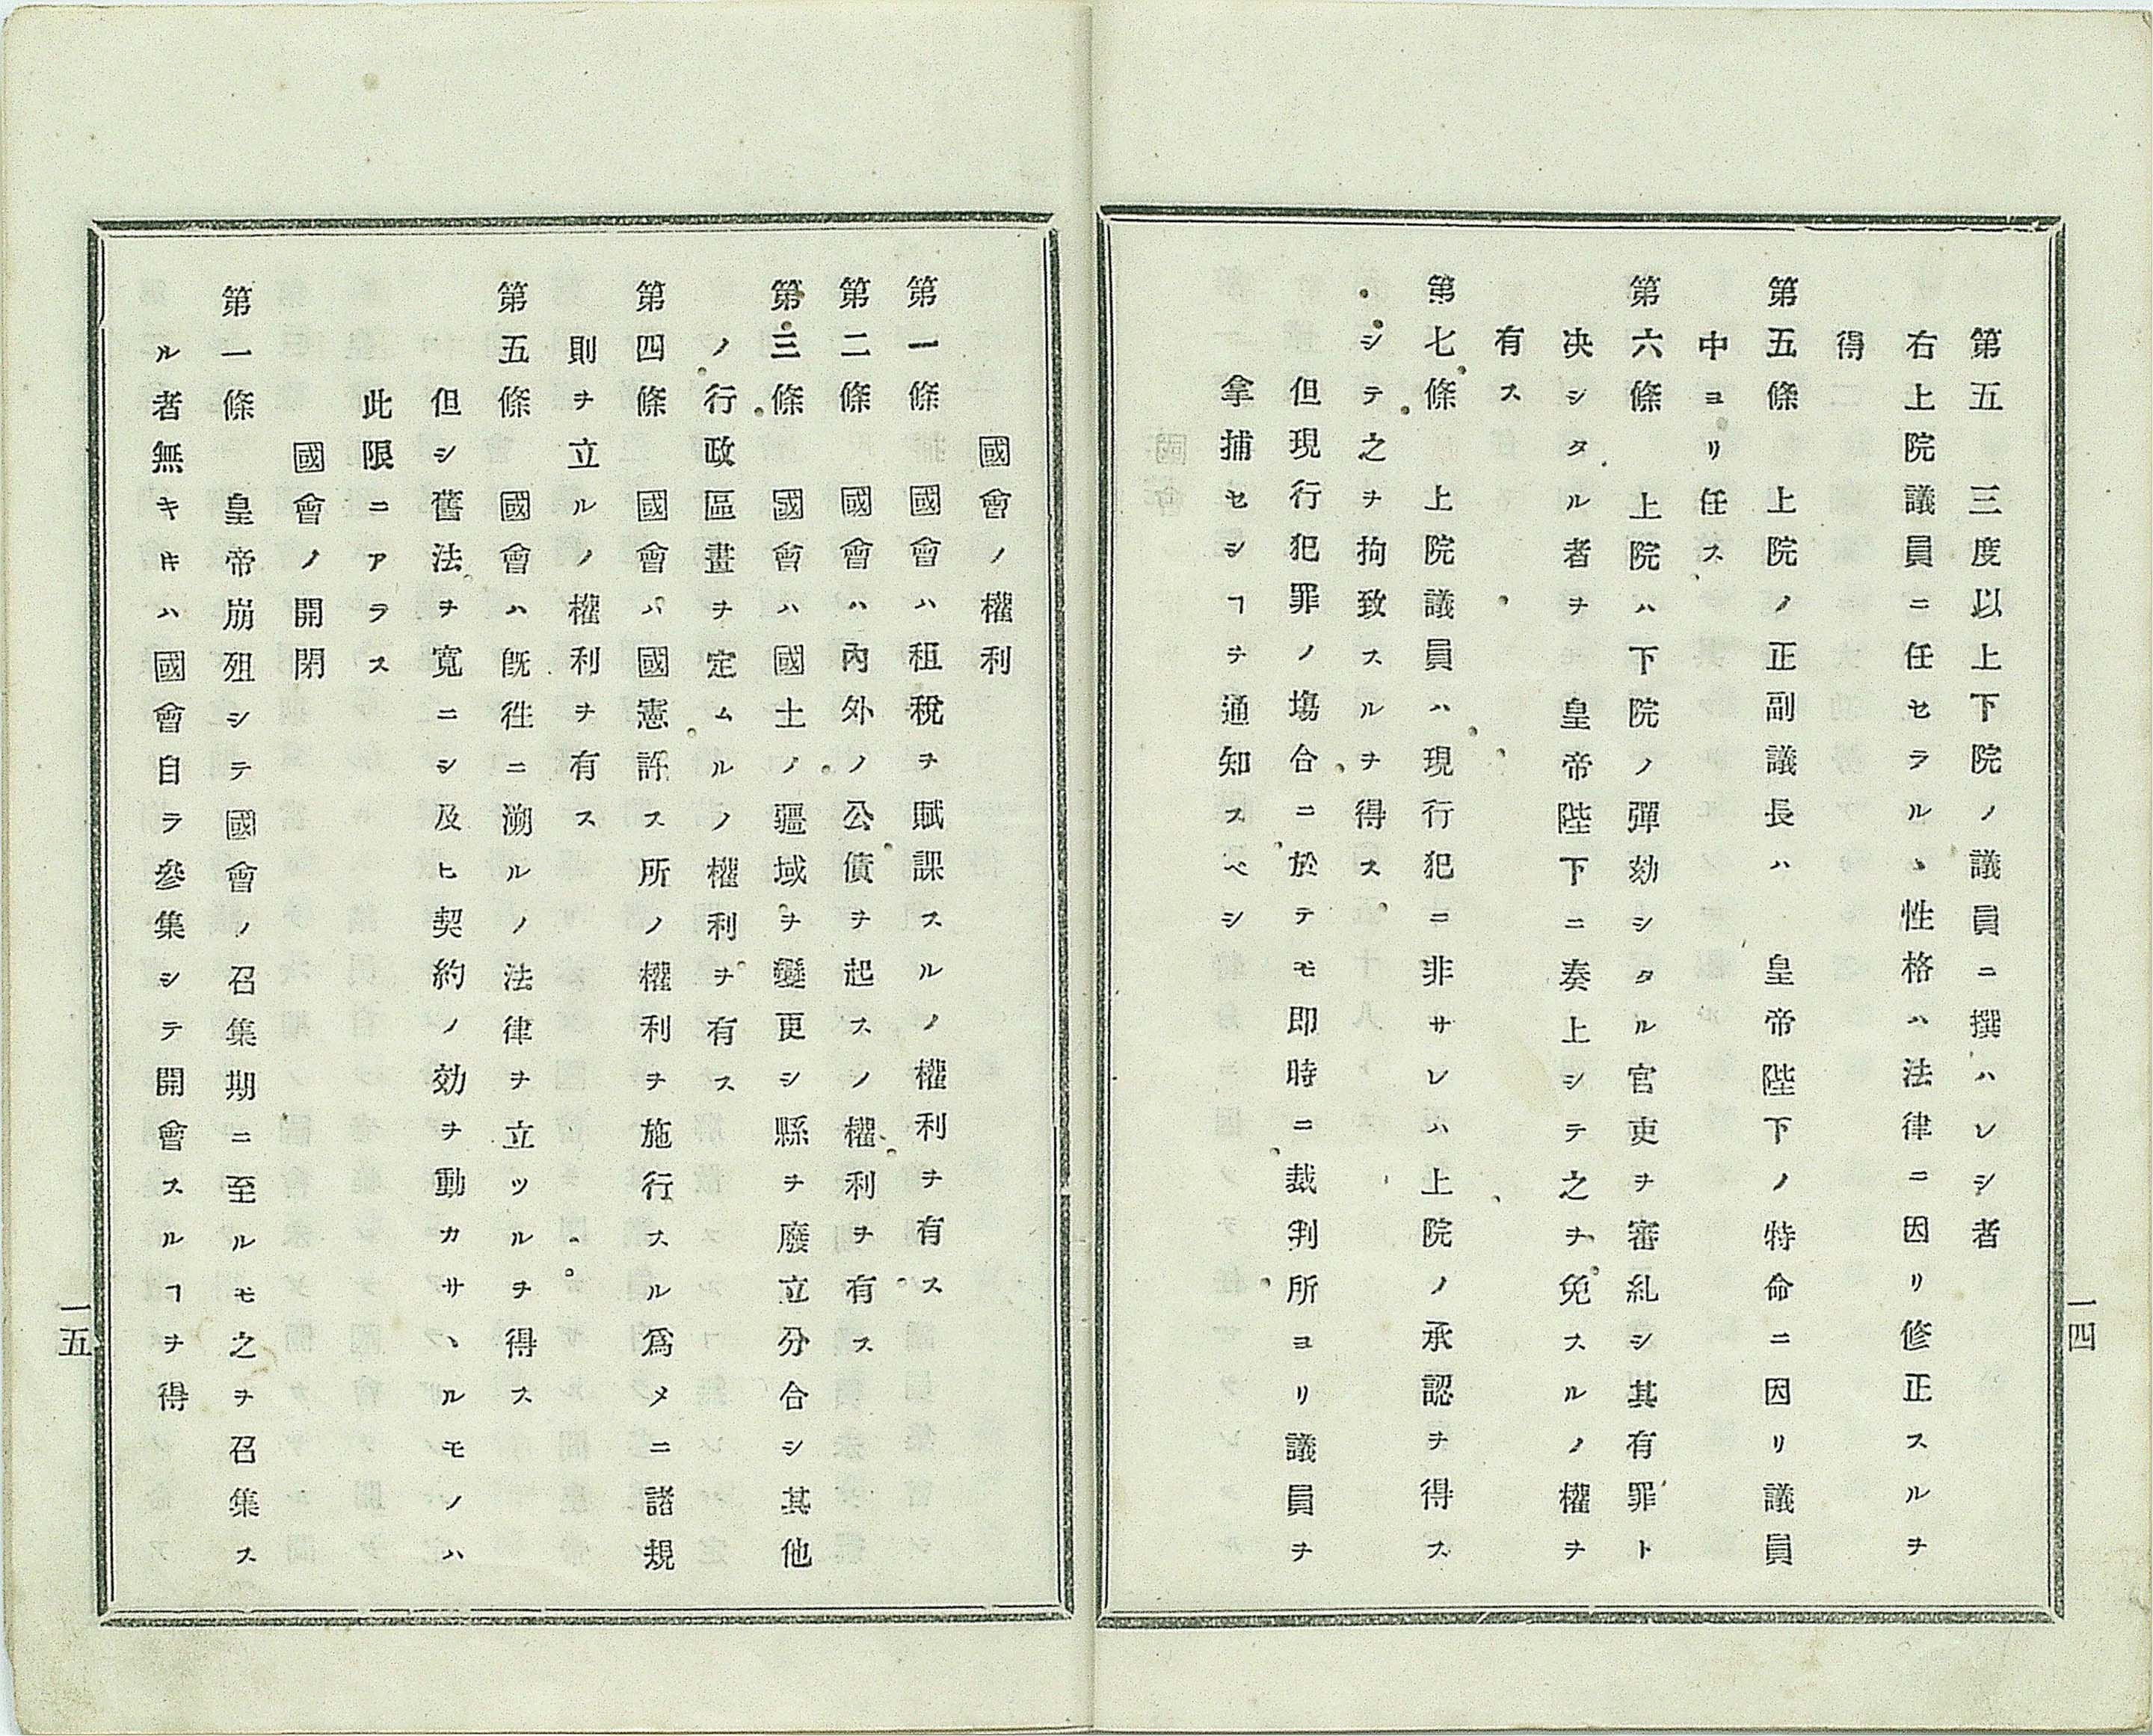 第五　三度以上下院ノ議員ニ撰ハレシ者
右上院議員ニ任セラルヽ性格ハ法律ニ因リ修正スルヲ
得
第五條　上院ノ正副議長ハ　皇帝陛下ノ特命ニ因リ議員
中ヨリ任ス
第六條　上院ハ下院ノ彈劾シタル官吏ヲ審糺シ其有罪ト
决シタル者ヲ　皇帝陛下ニ奏上シテ之ヲ免スルノ權ヲ
有ス
第七條　上院議員ハ現行犯ニ非サレハ上院ノ承認ヲ得ス
シテ之ヲ拘致スルヲ得ス
但現行犯罪ノ塲合ニ於テモ即時ニ裁判所ヨリ議員ヲ
拿捕セシヿヲ通知スベシ
一四
國會ノ權利
第一條　國會ハ租稅ヲ賦課スルノ權利ヲ有ス
第二條　國會ハ內外ノ公債ヲ起スノ權利ヲ有ス
第三條　國會ハ國土ノ疆域ヲ變更シ縣ヲ廢立分合シ其他
ノ行政區畫ヲ定ムルノ權利ヲ有ス
第四條　國會ハ國憲許ス所ノ權利ヲ施行スル爲メニ諸規
則ヲ立ルノ權利ヲ有ス
第五條　國會ハ旣徃ニ溯ルノ法律ヲ立ツルヲ得ス
但シ舊法ヲ寬ニシ及ヒ契約ノ効ヲ動カサヽルモノハ
此限ニアラス
國會ノ開閉
第一條　皇帝崩殂シテ國會ノ召集期ニ至ルモ之ヲ召集ス
ル者無キ𪜈ハ國會自ラ參集シテ開會スルヿヲ得
一五